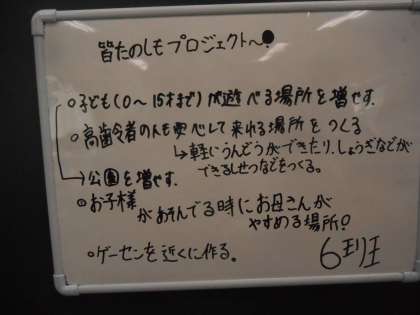 皆たのしもプロジェクト〜●
○子ども(0〜15才まで)が遊べる場所を増やす.
○高齢者の人も安心して来れる場所をつくる
↳軽いうんどうができたり,しょうぎなどが
できるしせつなどをつくる。
→公園を増やす.
○お子様があそんでる時にお母さんが
やすめる場所!
○ゲーセンを近くに作る。
6班